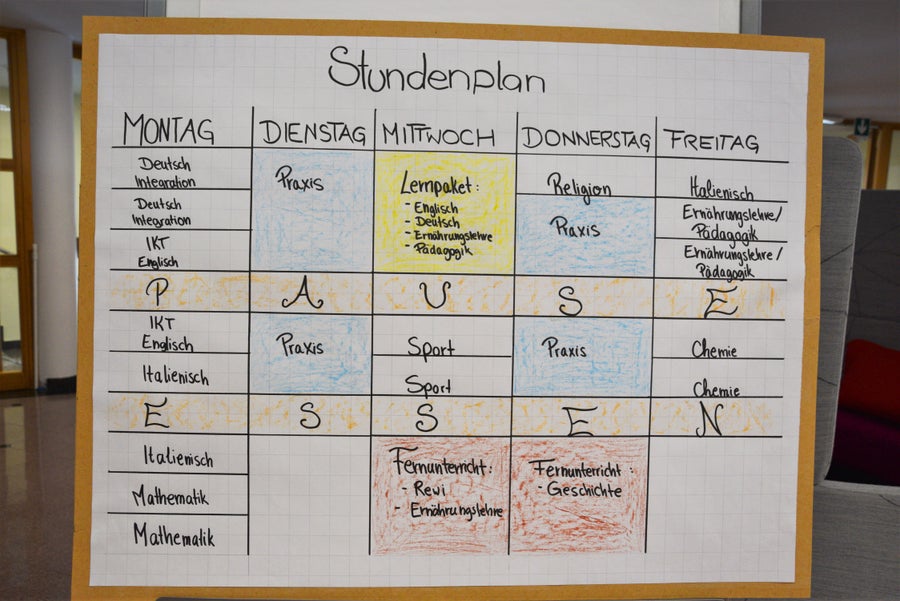 Stundenplan
MONTAG DIENSTAG MITTWOCH DONNERSTAG FREITAG
Deutsch
Integration
Deutsch
Integration
IKT
Englisch
Praxis
Lernpaket:
- Englisch
- Deutsch
- Ernährungslehre
- Pädagogik
Religion
Praxis
Italienisch
Ernährungslehre/
Pädagogik
Ernährungslehre/
Pädagogik
P A U S E
IKT
Englisch
Italienisch
Praxis
Sport
Sport
Praxis
Chemie
Chemie
E S S E N
Italienisch
Mathematik
Mathematik
Fernunterricht:
- Rewi
- Ernährungslehre
Fernunterricht:
- Geschichte